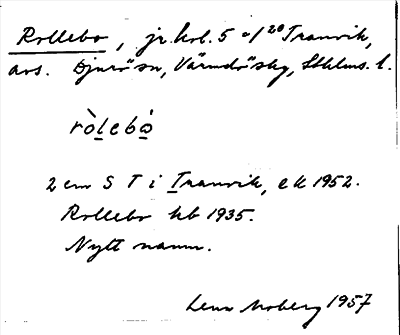 Rollebo, jr. kol. 5 a/20 Tranvik,
avs. Djurö sn, Värmdö skg, Sthlms l.
ròlebò
2 cm S T i Tranvik, ek 1952.
Rollebo hb 1935.
Nytt namn.
Lena Moberg 1957